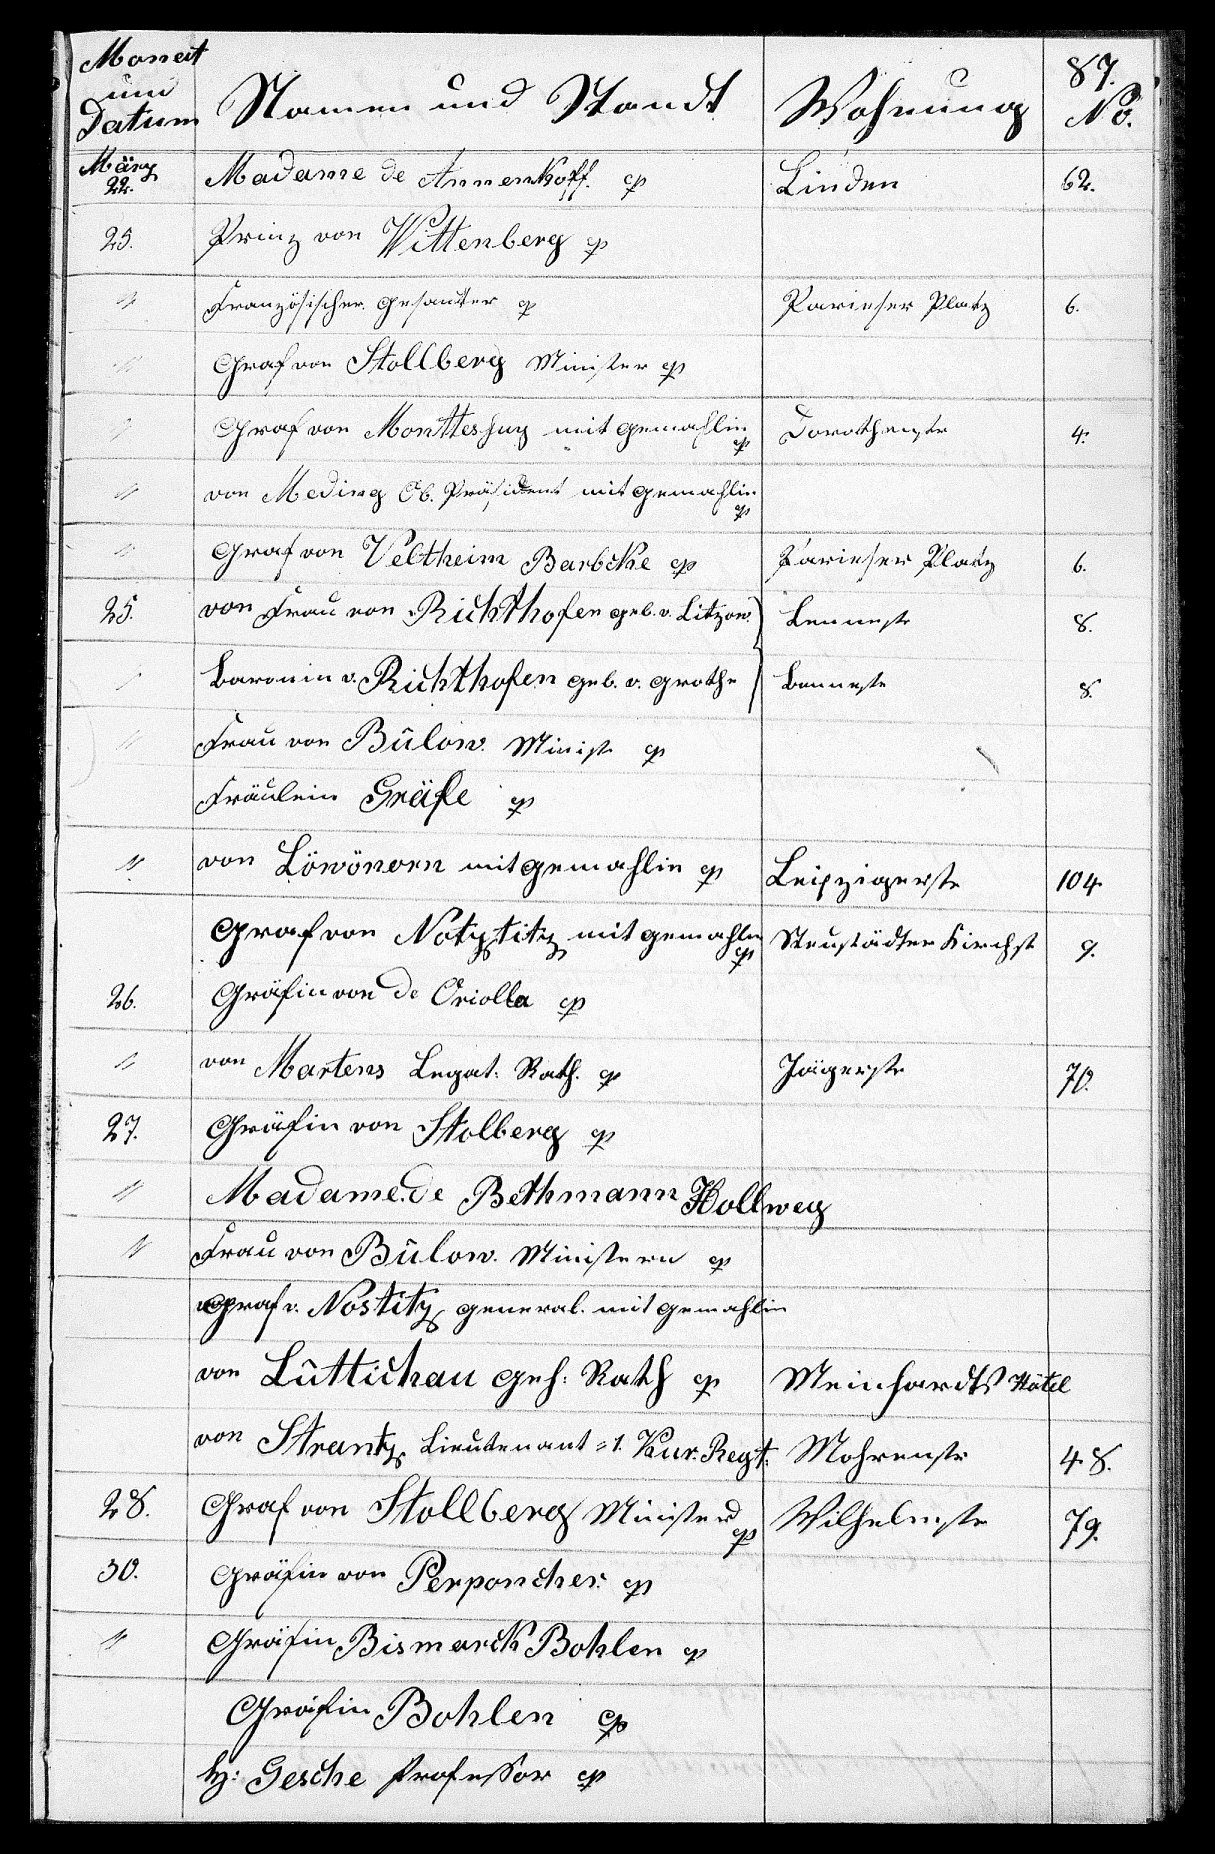 87.
Monat und Datum Namen und Standt Wohnung No.
März 22. Madame de Annenkoff. Linden 62.
25. Prinz von Wittenberg
" Französischer Gesandter Parieser Platz 6.
" Graf von Stollberg Minister
" Graf von Monttesguy mit Gemahlin Dorotheenstr 4.
" von Meding Ob. Präsident mit Gemahlin
" Graf von Veltheim Barbcke Parieser Platz 6.
25. von Frau von Richthofen geb. v. Litzow. Lennestr 8.
" Baronin v. Richthofen geb. v. Grothe Lennestr 8.
" Frau von Bülow. Minist
Fräulein Gräfe
" von Löwönorn mit Gemahlin Leipzigerstr 104
Graf von Notztitz mit Gemahlin Neustädter Kirchst 9.
26. Gräfin von de Oriolla
" von Martens Legat: Rath. Jägerstr 70.
27. Gräfin von Stolberg
" Madame. de Bethmann Hollweg
" Frau von Bülow. Ministern
Graf v. Nostitz General. mit Gemahlin
von Lüttichau Geh: Rath Meinhardts Hôtel
von Strantz Lieutenant 1. Kur. Regt. Mohrenstr 48.
28. Graf von Stollberg Minister Wilhelmstr 79.
30. Gräfin von Perponcher.
" Gräfin Bismarck Bohlen
Gräfin Bohlen
H: Gesche Professor